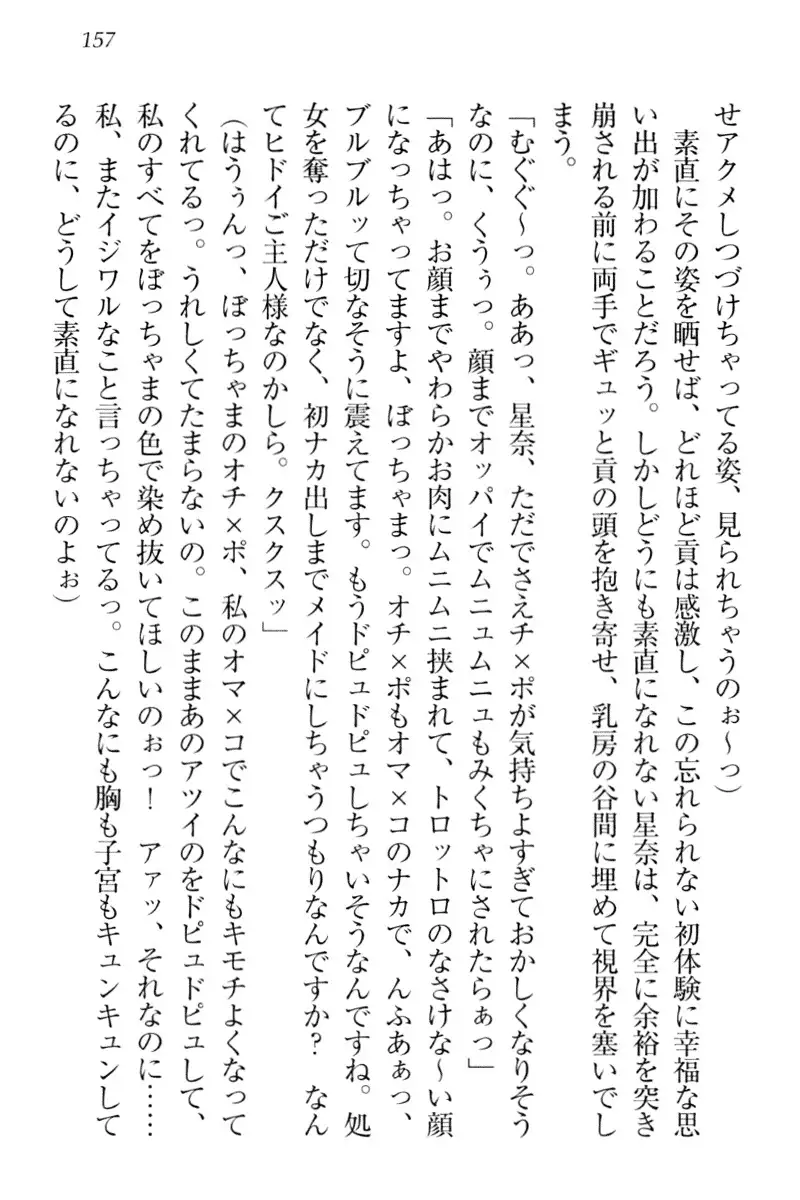 157
せアクメしつづけちゃってる姿、見られちゃうのぉ～っ）
素直にその姿を晒せば、どれほど貢は感激し、この忘れられない初体験に幸福な思
い出が加わることだろう。しかしどうにも素直になれない星奈は、完全に余裕を突き
崩される前に両手でギュッと貢の頭を抱き寄せ、乳房の谷間に埋めて視界を塞いでし
まう。
「むぐぐ～っ。ああっ、星奈、ただでさえチ×ポが気持ちよすぎておかしくなりそう
なのに、くうぅっ。顔までオッパイでムニュムニュもみくちゃにされたらぁっ」
「あはっ。お顔までやわらかお肉にムニムニ挟まれて、トロットロのなさけな～い顔
になっちゃってますよ、ぼっちゃまっ。オチ×ポもオマ×コのナカで、んふあぁっ、
ブルブルッて切なそうに震えてます。もうドピュドピュしちゃいそうなんですね。処
女を奪っただけでなく、初ナカ出しまでメイドにしちゃうつもりなんですか？　なん
てヒドイご主人様なのかしら。クスクスッ」
（はうぅんっ、ぼっちゃまのオチ×ポ、私のオマ×コでこんなにもキモチよくなって
くれてるっ。うれしくてたまらないの。このままあのアツイのをドピュドピュして、
私のすべてをぼっちゃまの色で染め抜いてほしいのぉっ！　アァッ、それなのに……
私、またイジワルなこと言っちゃってるっ。こんなにも胸も子宮もキュンキュンして
るのに、どうして素直になれないのよぉ）